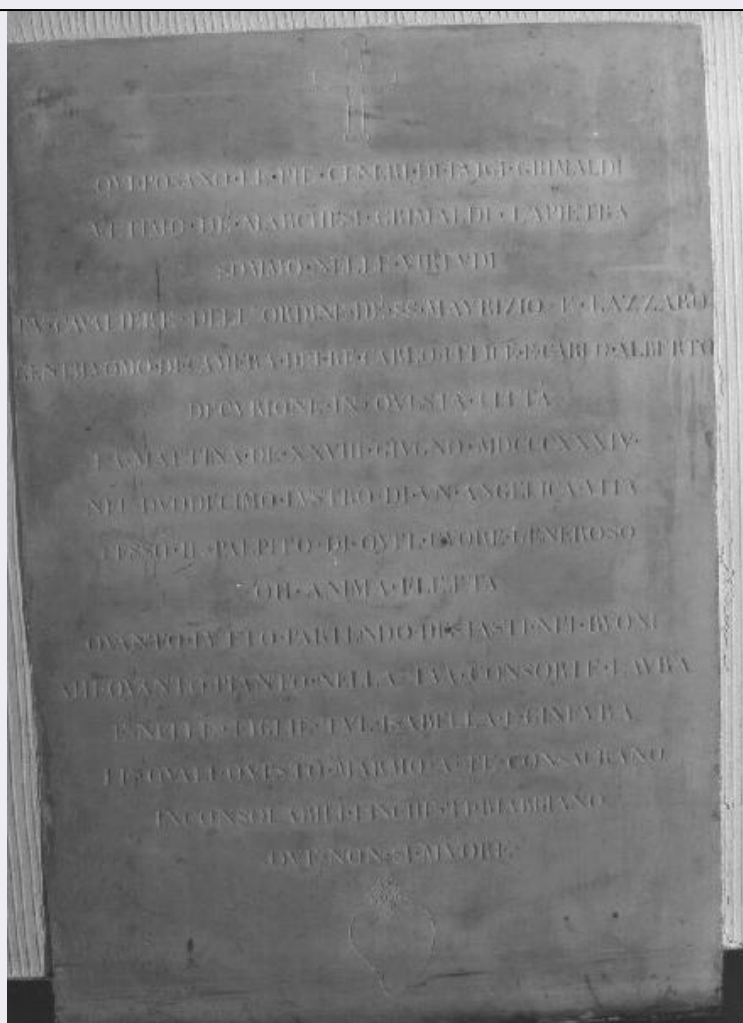 QVI·POSANO·LE·PIE·CENERI·DI·LVIGI·GRIMALDI
VLTIMO·DE·MARCHESI·GRIMALDI·LAPIETRA
SOMMO·NELLE·VIRTVDI
FV·CAVALIERE·DELL'ORDINE·DE·SS·MAVRIZIO·E·LAZZARO
GENTILVOMO·DI·CAMERA·DEI·RE·CARLO·FELICE·E·CARLO·ALBERTO
DECVRIONE·IN·QVESTA·CITTÀ
LA·MATTINA·DE·XXVIII·GIVGNO·MDCCCXXXIV·
NEL·DVODECIMO·LVSTRO·DI·VN·ANGELICA·VITA
CESSO·IL·PALPITO·DI·QVEL·CVORE·GENEROSO
OH·ANIMA·ELETTA
QVANTO·LVTTO·PARTENDO·DESTASTE·NEI·BVONI
AHI·QVANTO·PIANTO·NELLA·TVA·CONSORTE·LAVRA
E·NELLE·FIGLIE·TVE·ISABELLA·E·GINEVRA
LE·QVALI·QVESTO·MARMO·A·TE·CONSACRANO
INCONSOLABILI·FINCHE·TI·RIABBIANO
OVE·NON·SI·MVORE·